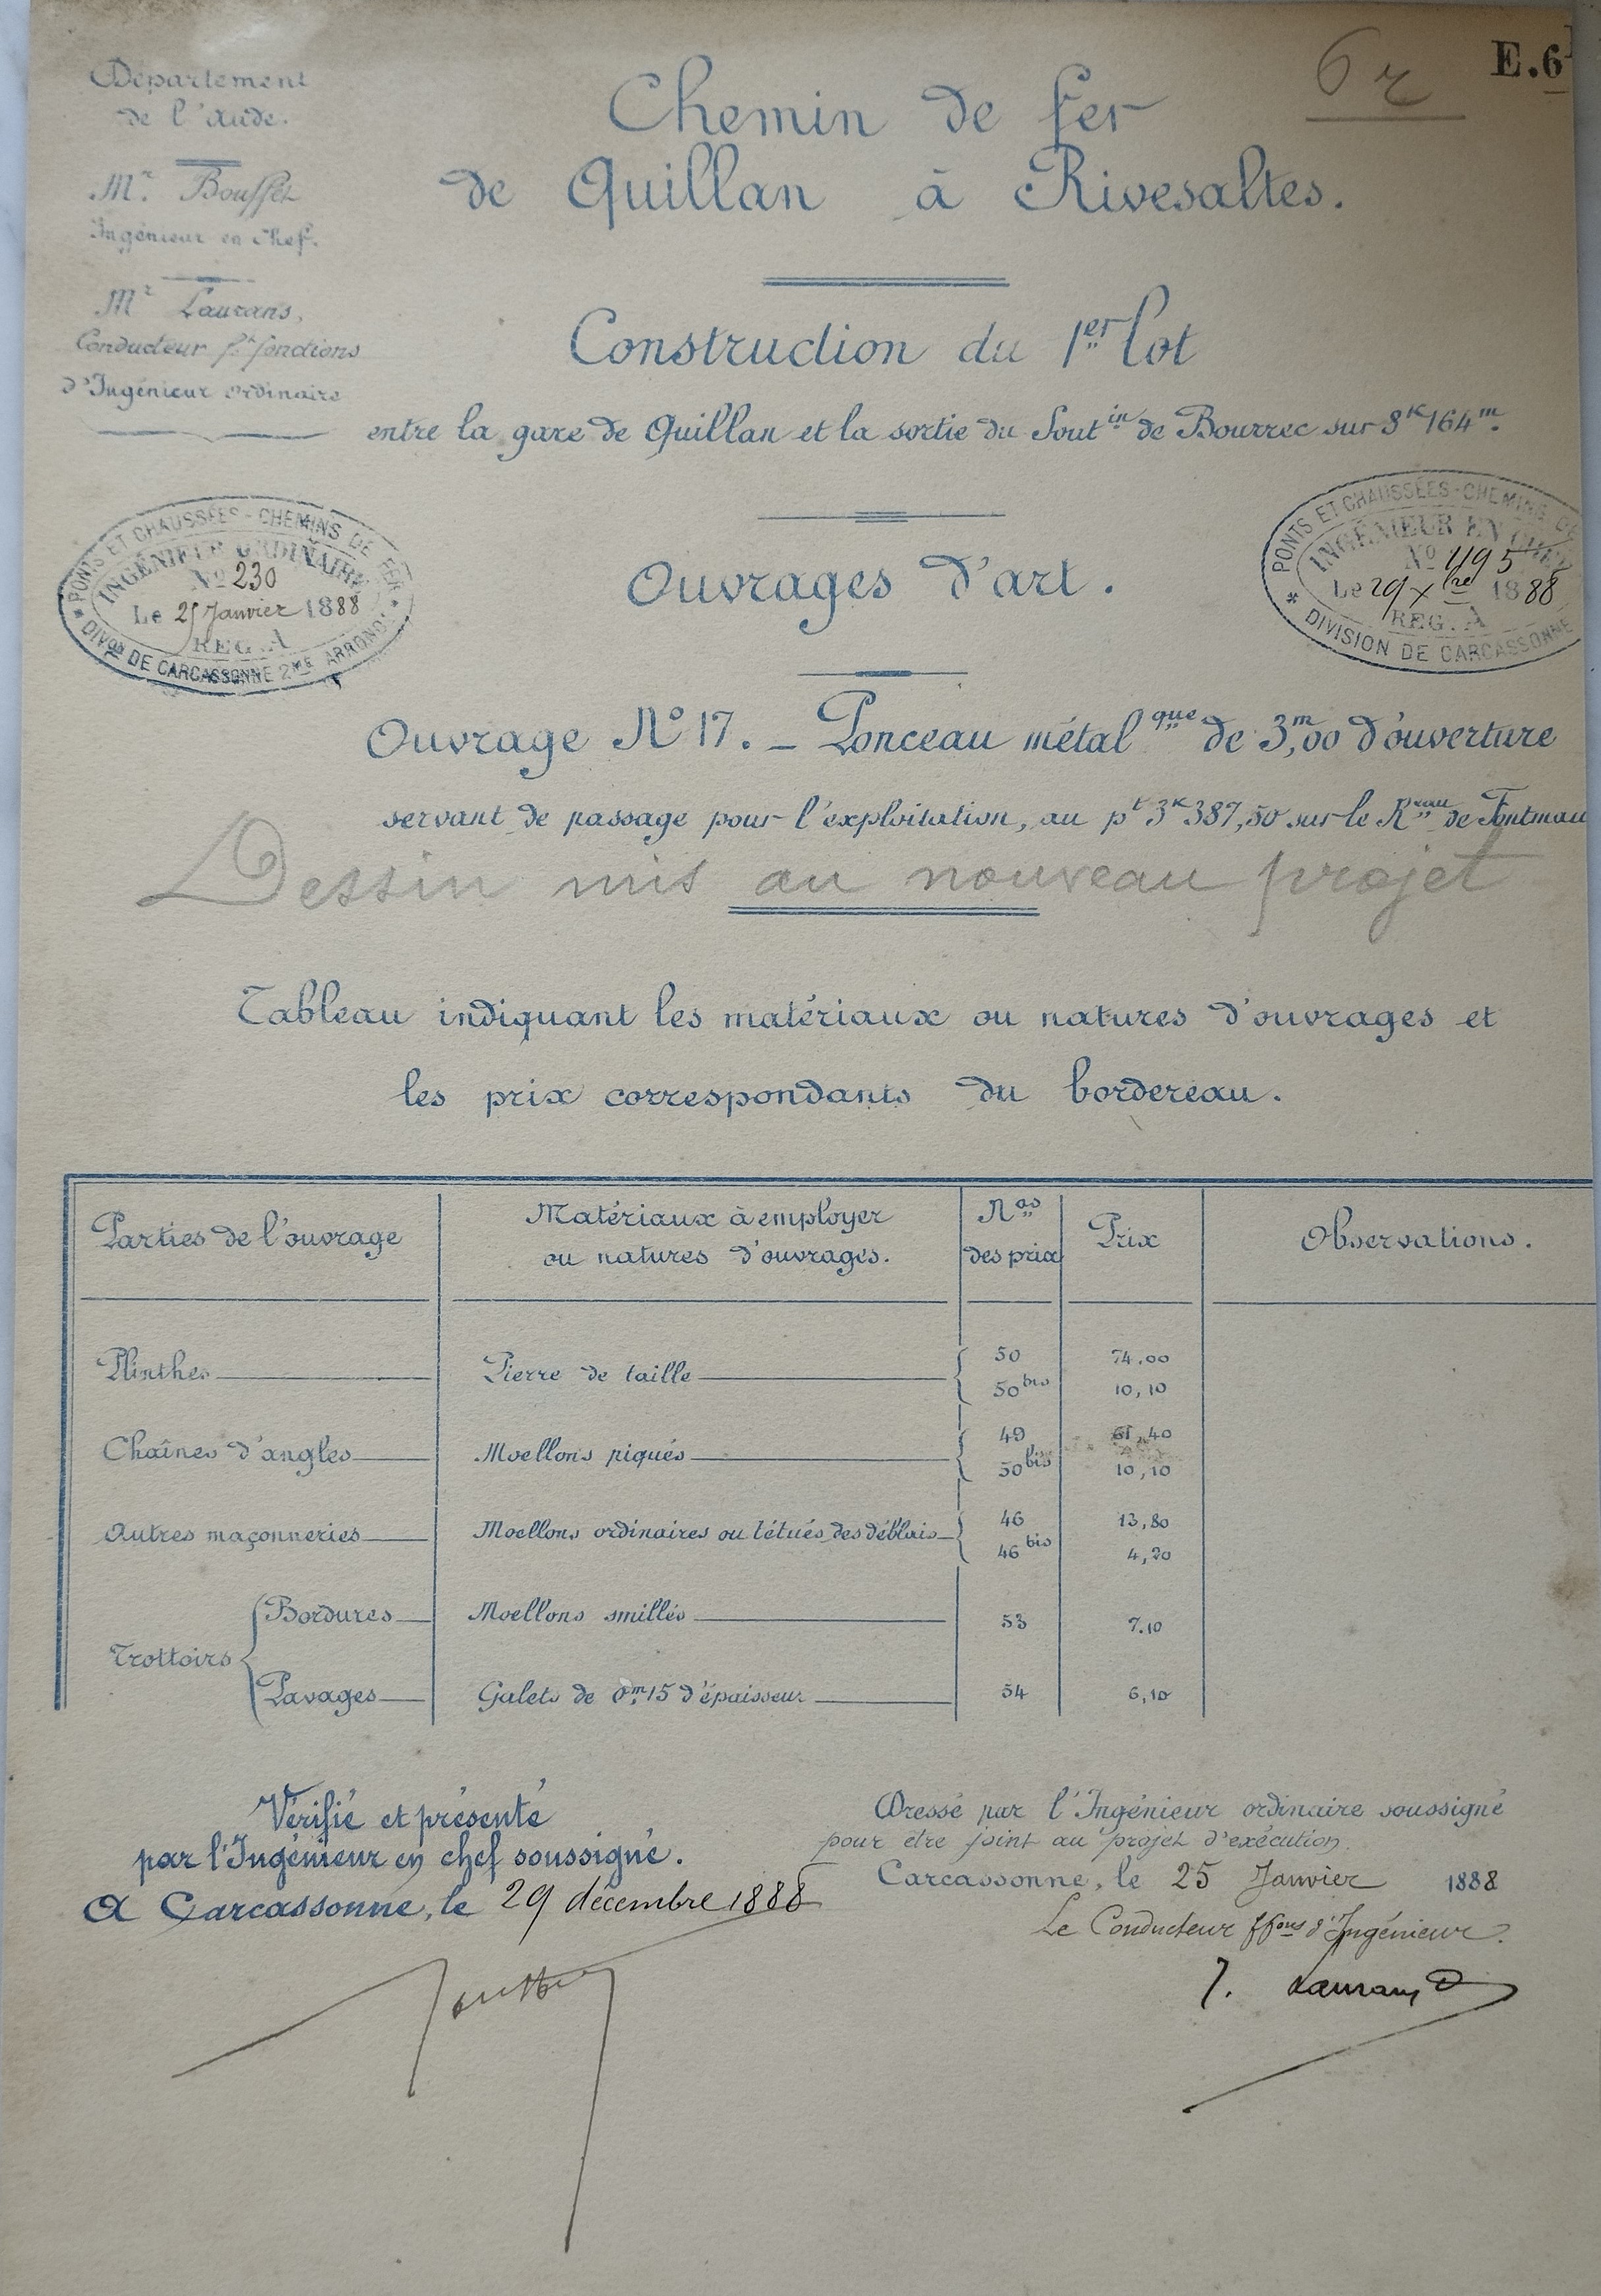 Département
de l'Aude.
Mr. Bouffet
Ingénieur en Chef.
Mr Laurans,
Conducteur ft fonctions
d'Ingénieur ordinaire
E.6
Chemin de fer
de Quillan à Rivesaltes.
Construction du 1er lot
entre la gare de Quillan et la sortie du Soutin de Bourrec sur 8K164m.
PONTS ET CHAUSSÉES - CHEMINS DE FER
INGÉNIEUR ORDINAIRE
No 230
Le 25 Janvier 1888
REG. A
DIVon DE CARCASSONNE 2ME ARROND.
PONTS ET CHAUSSÉES - CHEMINS DE
INGÉNIEUR EN CHEF
No 495
Le 29 Xbre 1888
REG. A
DIVISION DE CARCASSONNE
Ouvrages d'art.
Ouvrage No 17. - Ponceau métalque de 3m,00 d'ouverture
servant de passage pour l'exploitation, au pt 3K387,50 sur le Reau de Fontmau
Dessin mis au nouveau projet
Tableau indiquant les matériaux ou natures d'ouvrages et
les prix correspondants du bordereau.
Parties de l'ouvrage
Matériaux à employer
ou natures d'ouvrages.
Nos
des prix
Prix
Observations.
Plinthes Pierre de taille 50 74.00
50bis 10,10
Chaînes d'angles Moellons piqués 49 61,40
50bis 10,10
Autres maçonneries Moellons ordinaires ou têtués des déblais 46 13,80
46bis 4,20
Trottoirs
Bordures Moellons smillés 53 7.10
Pavages Galets de 0m,15 d'épaisseur 54 6,10
Vérifié et présenté
par l'Ingénieur en chef soussigné.
A Carcassonne, le 29 décembre 1888
Dressé par l'Ingénieur ordinaire soussigné
pour être joint au projet d'exécution.
Carcassonne, le 25 Janvier 1888
Le Conducteur ffons d'Ingénieur.
J. Laurans